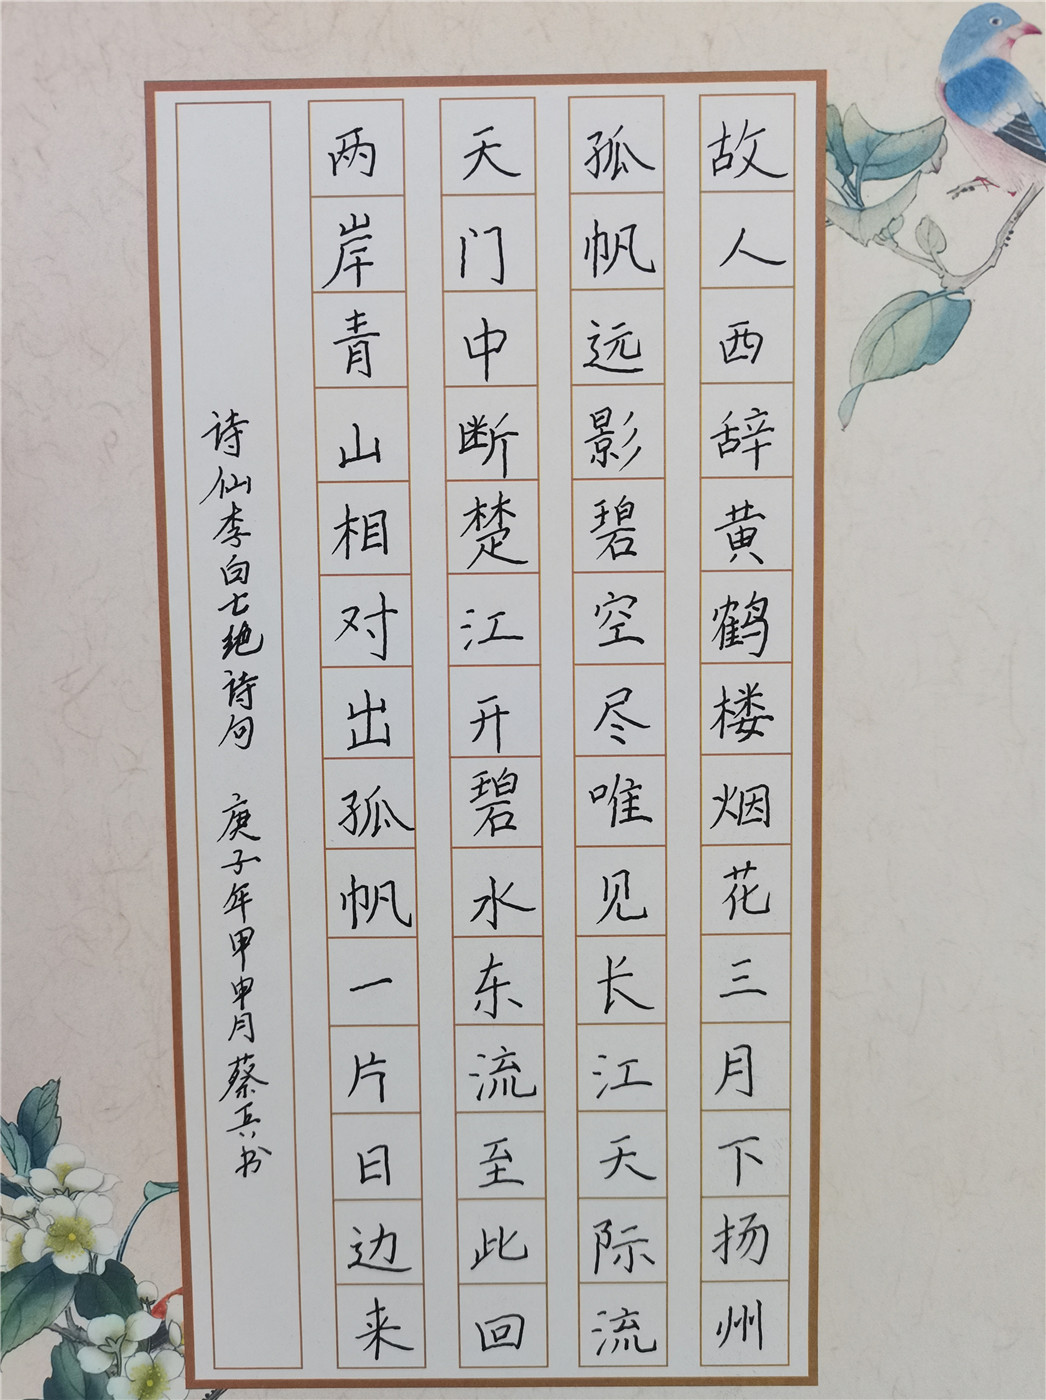 故人西辞黄鹤楼烟花三月下扬州
孤帆远影碧空尽唯见长江天际流
天门中断楚江开碧水东流至此回
两岸青山相对出孤帆一片日边来
诗仙李白七绝诗句 庚子年甲申月蔡兵书